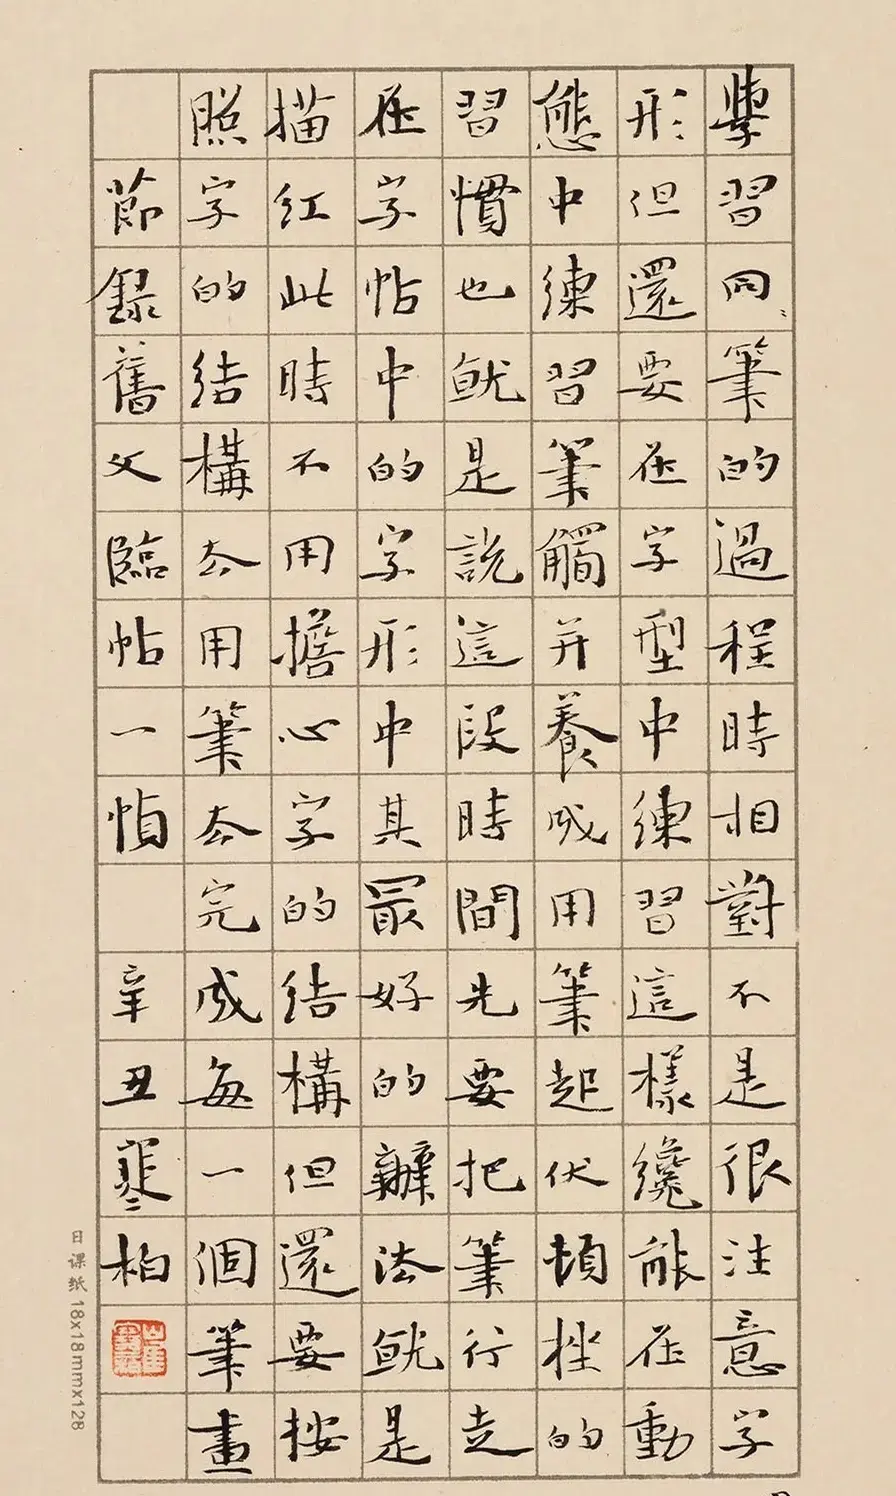 學習同筆的過程時相對不是很注意字
形但還要在字型中練習這樣纔能在動
態中練習筆觸并養成用筆起伏頓挫的
習慣也就是說這段時間先要把筆行走
在字帖中的字形中其最好的辦法就是
描紅此時不用擔心字的結構但還要按
照字的結構去用筆去完成每一個筆畫
節錄舊文臨帖一幀 辛丑寒柏
日课纸 18x18mmx128